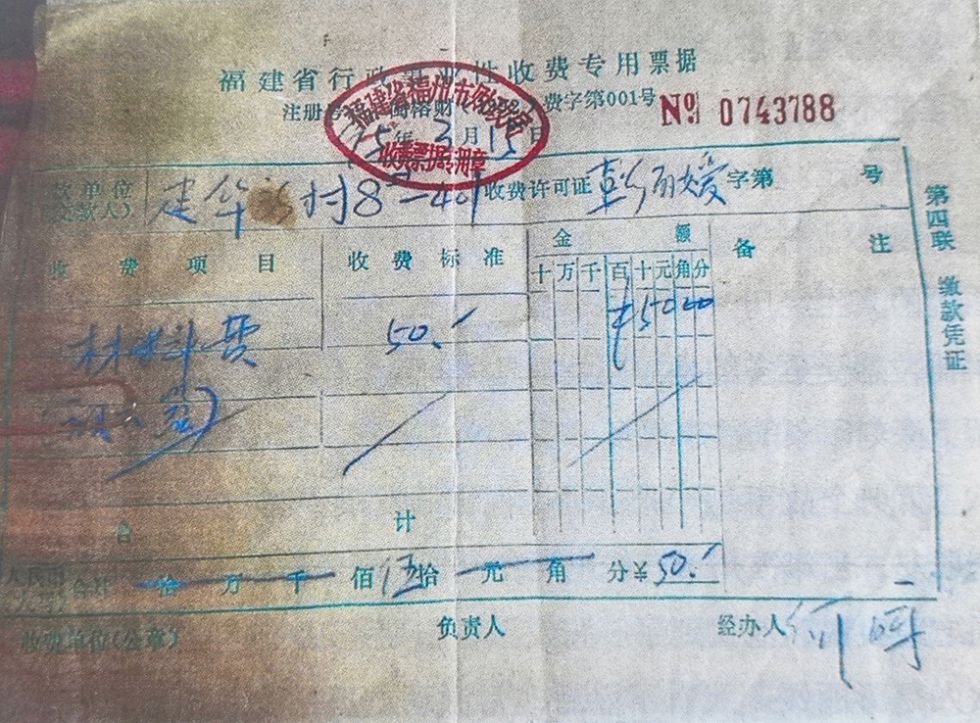 福建省行政事业性收费专用票据
注册号 闽榕财 费字第001号 № 0743788
福建省福州市财政局
收费票据专用章
95年 3月15日
款单位 建华新村8 401 收费许可证 字第 号
(交款人)
收费项目 收费标准 金额 备注
十万千百十元角分
材料费 50.- ¥5000
合计
人民币 合计 拾万千佰伍拾元角分¥50.-
(大写)
收费单位(公章) 负责人 经办人
第四联 缴款凭证